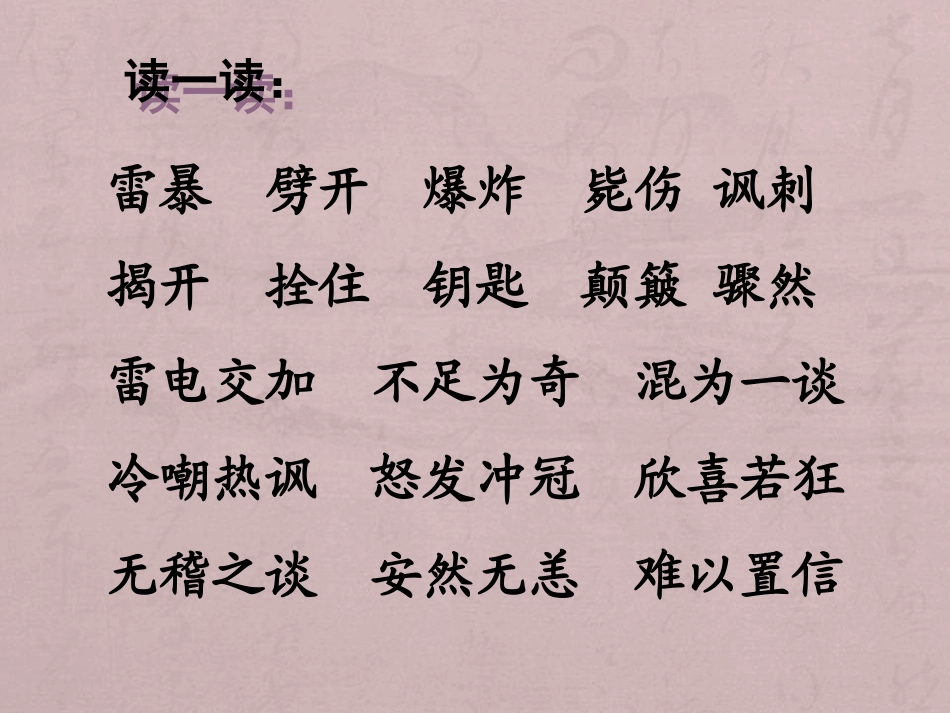 读一读：
雷暴 劈开 爆炸 毙伤 讽刺
揭开 拴住 钥匙 颠簸 骤然
雷电交加 不足为奇 混为一谈
冷嘲热讽 怒发冲冠 欣喜若狂
无稽之谈 安然无恙 难以置信